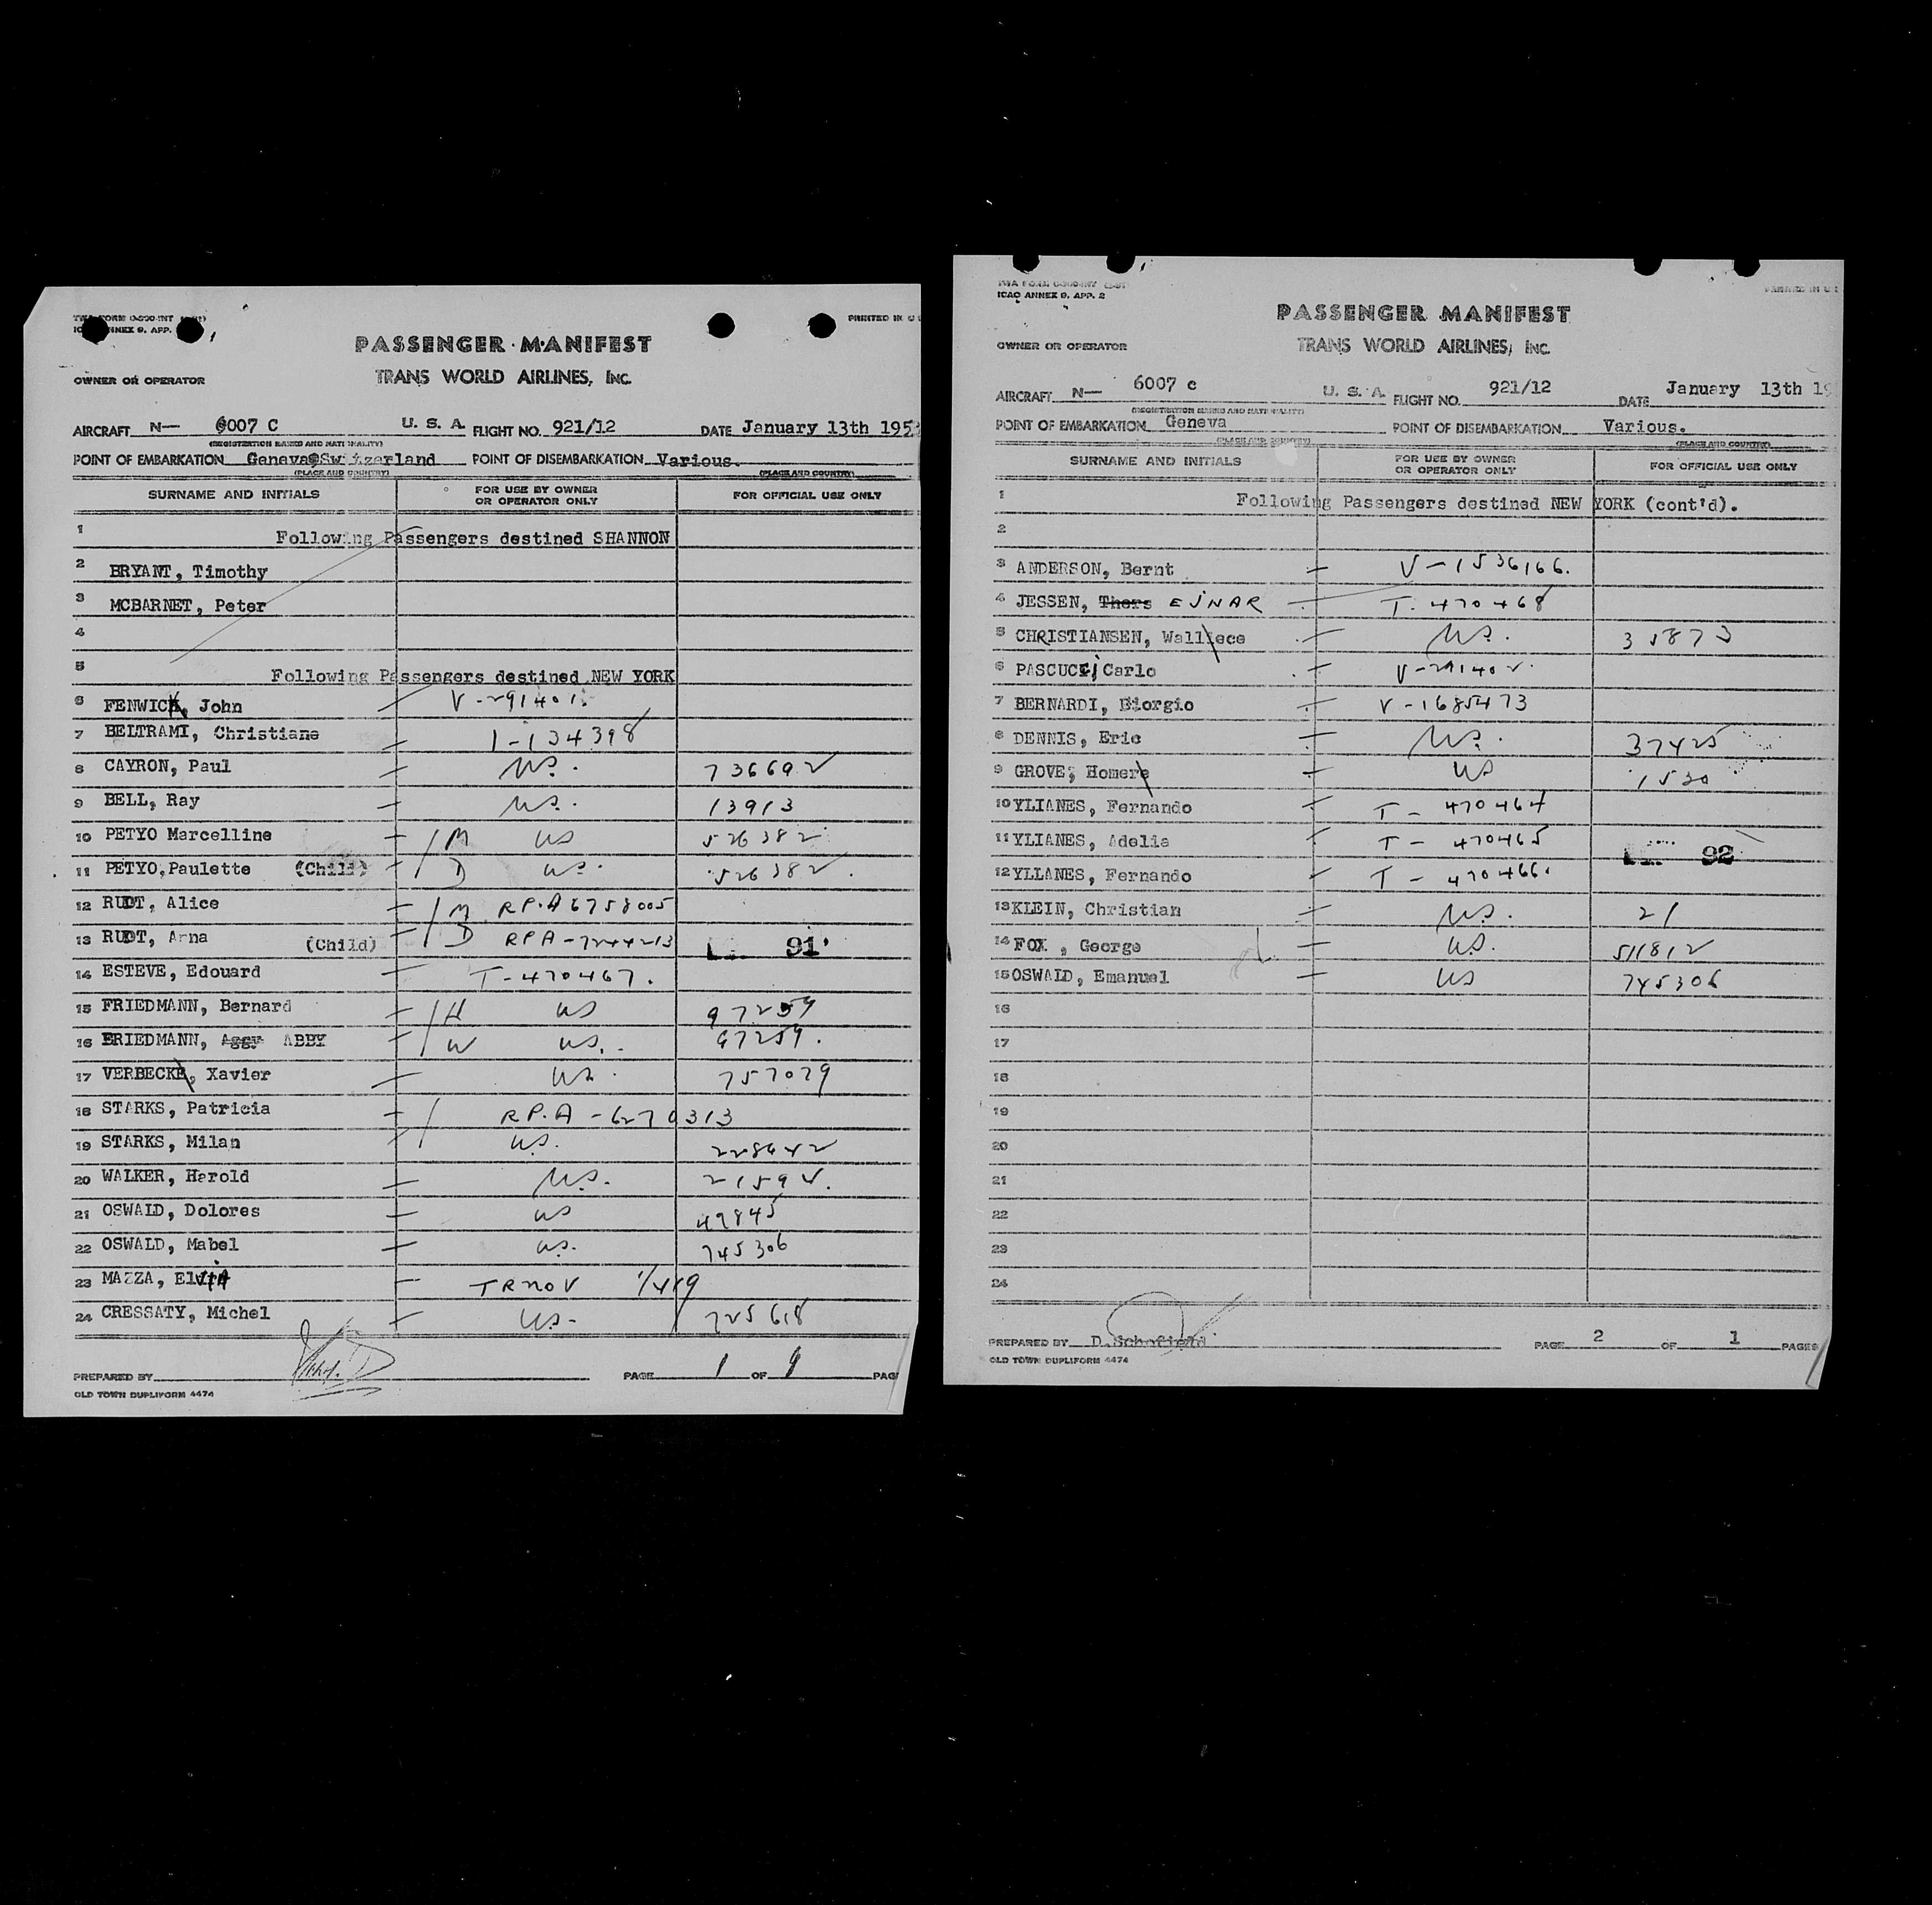 PRINTED IN U
PASSENGER MANIFEST
TRANS WORLD AIRLINES, INC.
OWNER OR OPERATOR
AIRCRAFT N— 6007 C U. S. A. FLIGHT NO. 921/12 DATE January 13th 195
(REGISTRATION MARKS AND NATIONALITY)
POINT OF EMBARKATION Geneva Switzerland POINT OF DISEMBARKATION Various.
(PLACE AND COUNTRY) (PLACE AND COUNTRY)
SURNAME AND INITIALS FOR USE BY OWNER OR OPERATOR ONLY FOR OFFICIAL USE ONLY
1 Following Passengers destined SHANNON
2 BRYANT, Timothy
3 MCBARNET, Peter
4
5 Following Passengers destined NEW YORK
6 FENWICK, John V-291401.
7 BELTRAMI, Christiane 1-134398
8 CAYRON, Paul US. 736692
9 BELL, Ray US. 13913
10 PETYO Marcelline M US 526382
11 PETYO, Paulette (Child) D US. 526382.
12 RUDT, Alice M RP.A6758005
13 RUDT, Arna (Child) D RPA-7244213 91
14 ESTEVE, Edouard T-470467.
15 FRIEDMANN, Bernard H US 97259
16 FRIEDMANN, Aggy ABBY W US. 97259.
17 VERBECKE, Xavier US. 757029
18 STARKS, Patricia RP.A-6270313
19 STARKS, Milan US. 228642
20 WALKER, Harold US. 21592.
21 OSWALD, Dolores US 49845
22 OSWALD, Mabel US. 745306
23 MAZZA, ElviA TRNOV 1/419
24 CRESSATY, Michel US- 725618
PREPARED BY PAGE 1 OF PAG
OLD TOWN DUPLIFORM 4474
ICAO ANNEX 9. APP. 2
PASSENGER MANIFEST
OWNER OR OPERATOR TRANS WORLD AIRLINES, INC.
AIRCRAFT N— 6007 c U. S. A. FLIGHT NO. 921/12 DATE January 13th 19
(REGISTRATION MARKS AND NATIONALITY)
POINT OF EMBARKATION Geneva POINT OF DISEMBARKATION Various.
(PLACE AND COUNTRY) (PLACE AND COUNTRY)
SURNAME AND INITIALS FOR USE BY OWNER OR OPERATOR ONLY FOR OFFICIAL USE ONLY
1 Following Passengers destined NEW YORK (cont'd).
2
3 ANDERSON, Bernt V-1536166.
4 JESSEN, Thers EJNAR T. 470468
5 CHRISTIANSEN, Walliece US. 35873
6 PASCUCCi, Carlo V-291402.
7 BERNARDI, Biorgio V-1685473
8 DENNIS, Eric US. 37425
9 GROVE, Homere US 1530
10 YLIANES, Fernando T- 470464
11 YLIANES, Adelia T- 470465 92
12 YLLANES, Fernando T- 470466.
13 KLEIN, Christian US. 21
14 FOX , George US. 511812
15 OSWALD, Emanuel US 745306
16
17
18
19
20
21
22
23
24
PREPARED BY D. Schofield PAGE 2 OF 1 PAGES
OLD TOWN DUPLIFORM 4474